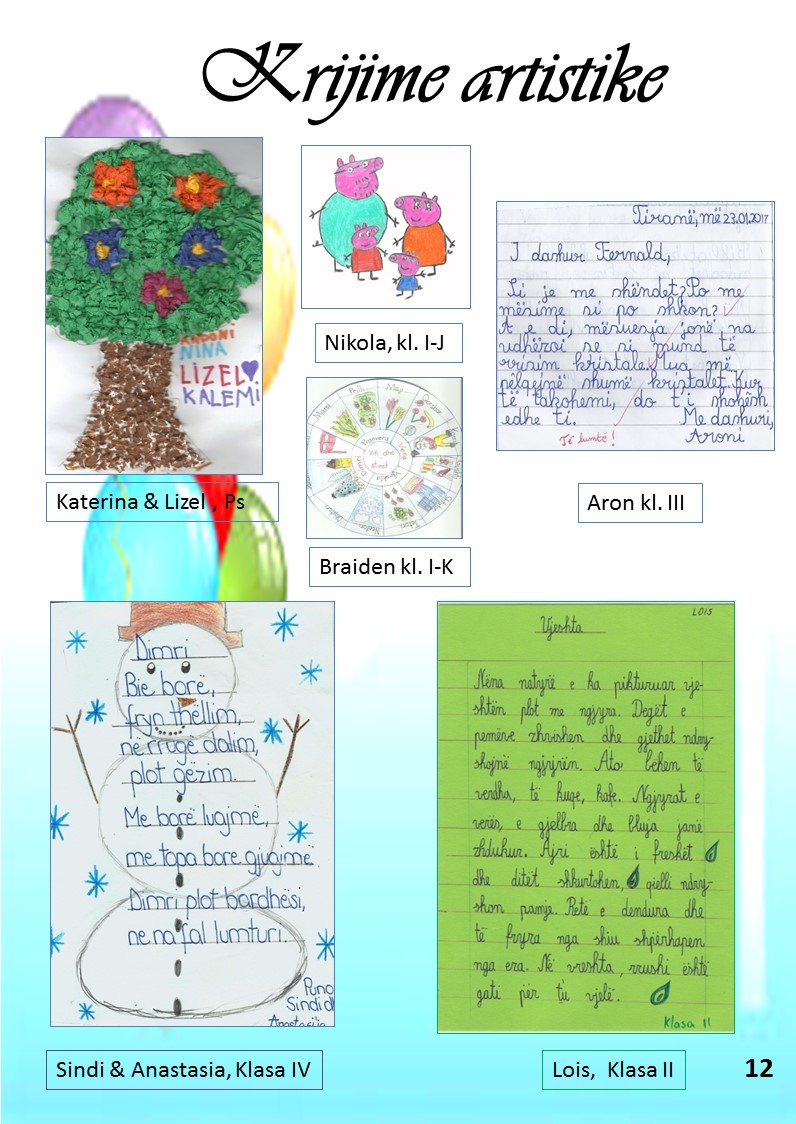 Krijime artistike
ANDONI
NINA
LIZEL
KALEMI
Katerina & Lizel , Ps
Nikola, kl. I-J
Maj
Prill
Mars
Pranvera
Vera
Viti dhe
stinët
Vjeshta
Dimri
Braiden kl. I-K
Tiranë, më 23.01.2017
I dashur Fernald,
Si je me shëndet? Po me
mësime si po shkon?
A e di, mësuesja jonë na
udhëzoi se si mund të
rrisim kristale. Mua më
pëlqejnë shumë kristalet. Kur
të takohemi, do t'i shohësh
edhe ti. Me dashuri,
Aroni
Të lumtë!
Aron kl. III
Dimri
Bie borë,
fryn thëllim,
në rrugë dalim,
plot gëzim.
Me borë luajmë,
me topa bore gjuajmë.
Dimri plot bardhësi,
ne na fal lumturi.
Puno
Sindi d
Anastasia
Sindi & Anastasia, Klasa IV
LOIS
Vjeshta
Nëna natyrë e ka pikturuar vje-
shtën plot me ngjyra. Degët e
pemëve zhvishen dhe gjethet ndry-
shojnë ngjyrën. Ato bëhen të
verdha, të kuqe, kafe. Ngjyrat e
verës, e gjelbra dhe bluja janë
zhdukur. Ajri është i freskët
dhe ditët shkurtohen, qielli ndry-
shon pamje. Retë e dendura dhe
të fryra nga shiu shpërhapen
nga era. Në vreshta, rrushi është
gati për t'u vjelë.
Klasa II
Lois, Klasa II
12